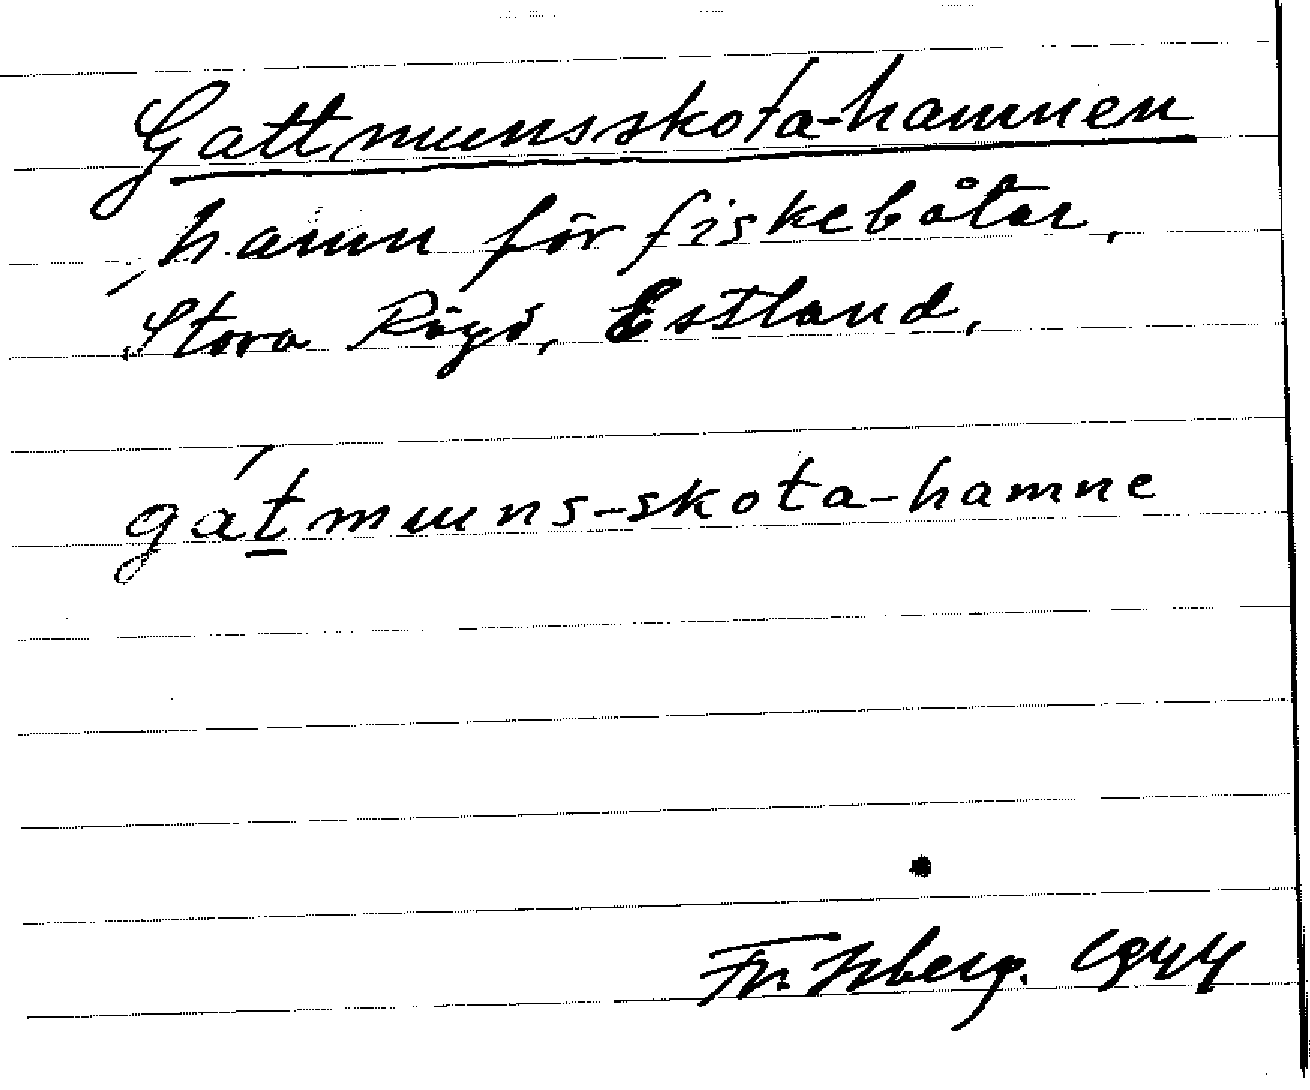 Gattmunsskota-hamnen
hamn för fiskebåtar,
Stora Rågö, Estland,
gátmuns-skota-hamne
Fr. Isberg. 1944